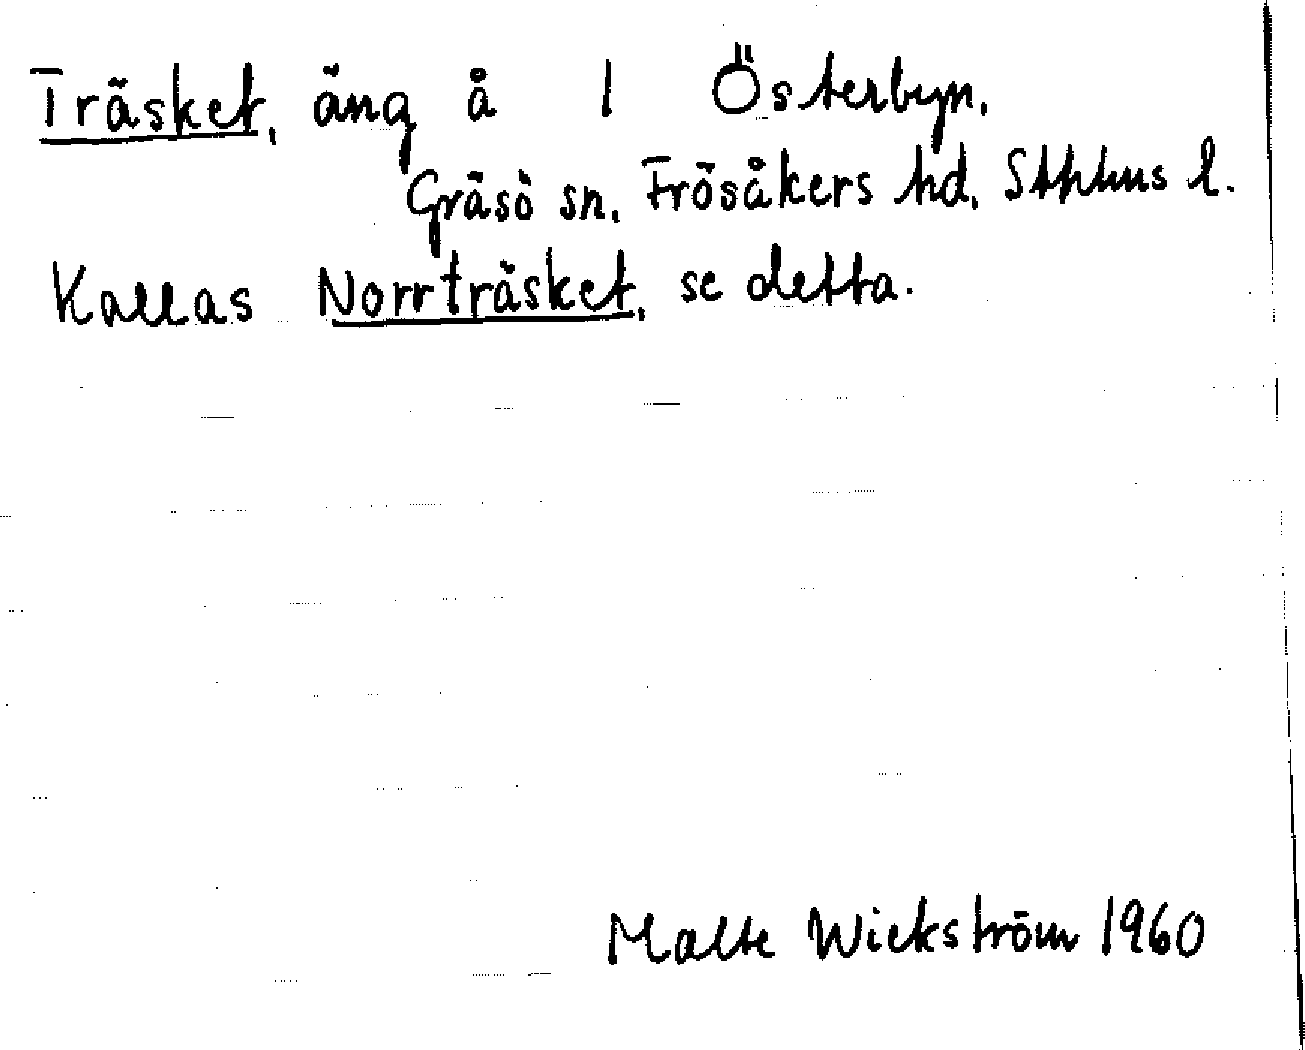 Träsket, äng å 1 Österbyn.
Gräsö sn. Frösåkers hd. Sthlms l.
Kallas Norrträsket, se detta.
Malte Wickström 1960